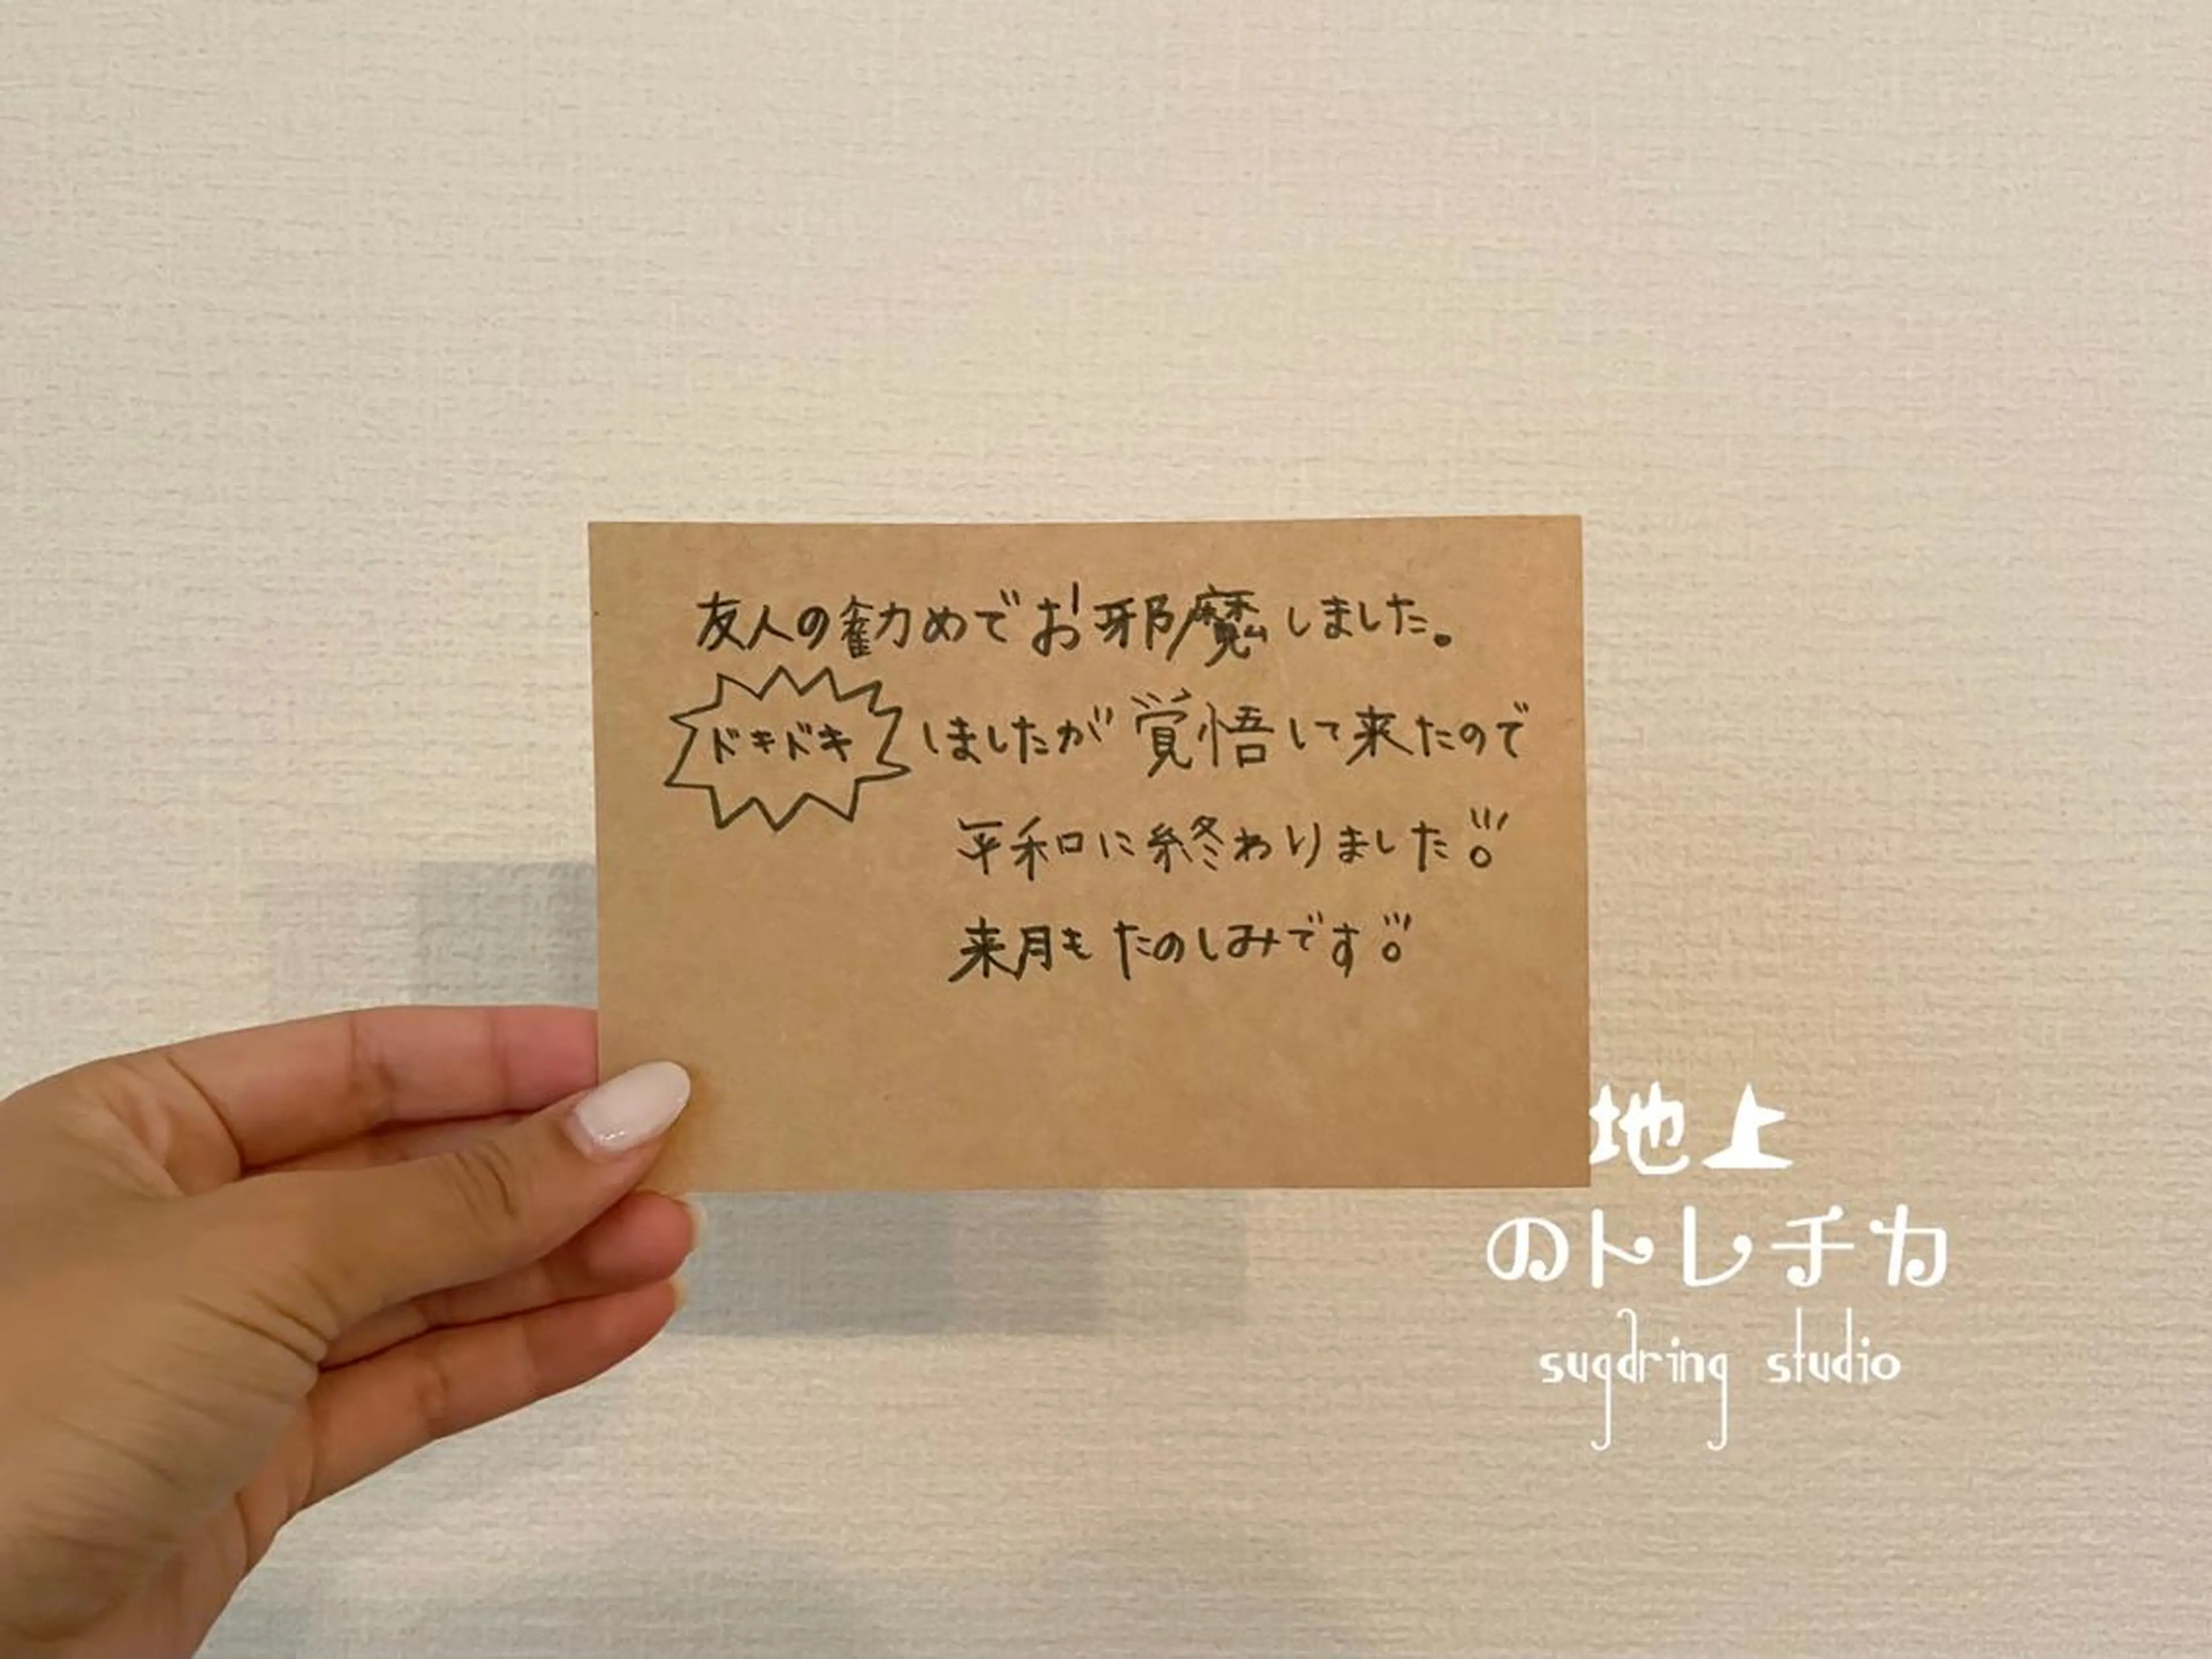 友人の勧めでお邪魔しました。
ドキドキしましたが覚悟して来たので
平和に終わりました!!!
来月もたのしみです!!!
地上
のトレチカ
sugaring studio